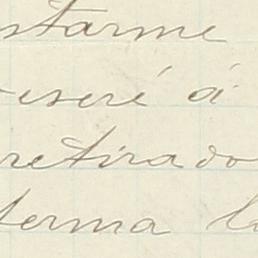 ntarme
eseré á
retirado
terma la